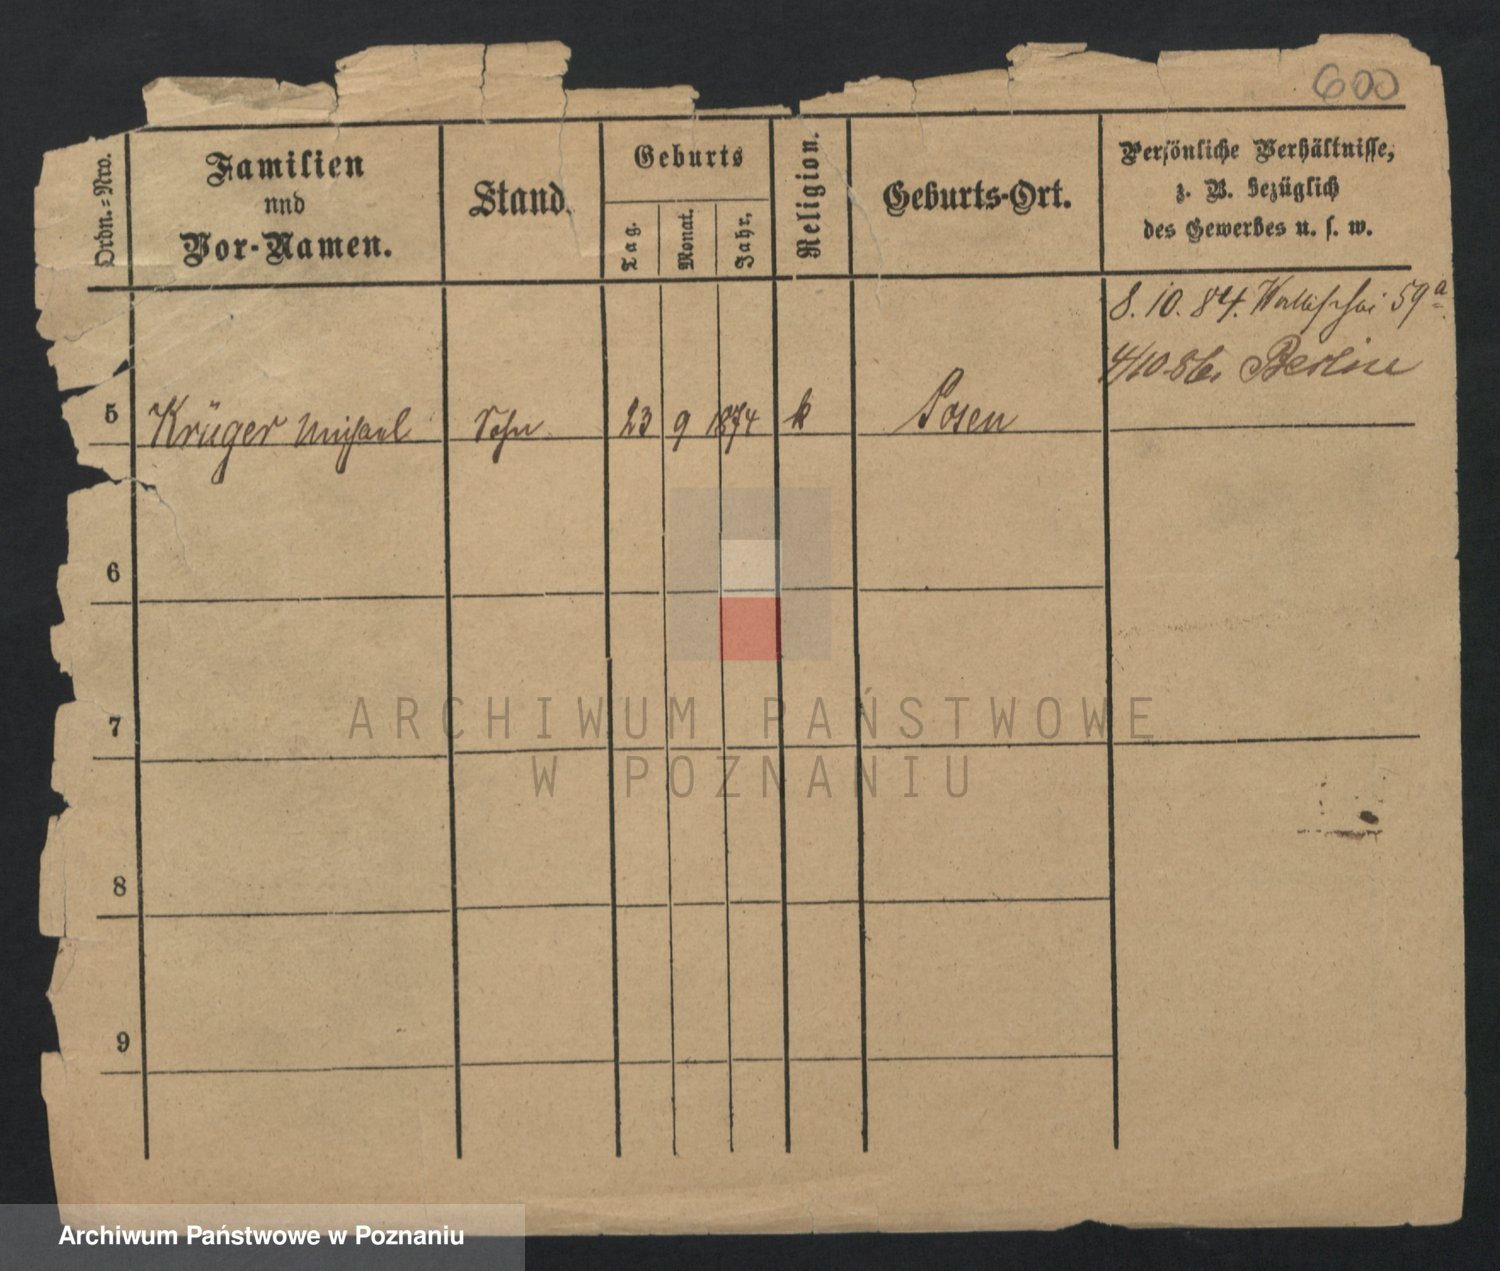 600
Ordn.=Nro.
Familien
nnd
Vor-Namen.
Stand.
Geburts
Tag.
Monat.
Jahr.
Religion.
Geburts-Ort.
Persönliche Verhältnisse,
z. B. bezüglich
des Gewerbes u. s. w.
8. 10. 84. Wallischei 59a
4/10 86. Berline
5 Krüger Michael Sohn 23 9 1874 k Posen
6
7
8
9
ARCHIWUM PAŃSTWOWE
W POZNANIU
Archiwum Państwowe w Poznaniu